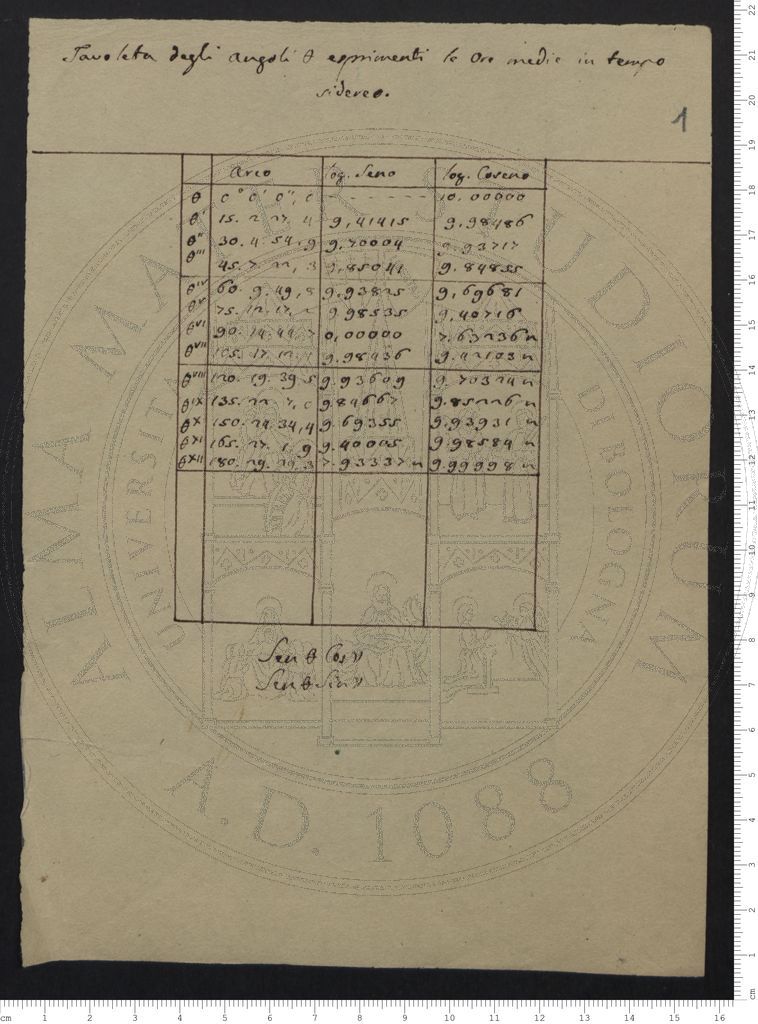 Tavoleta degli angoli θ esprimenti le Ore medie in tempo
sidereo.
1
Arco log. Seno log. Coseno
θ 0° 0' 0", 0 - - - - - - 10.00000
θ' 15. 2. 27, 4 9,41415 9.98486
θ" 30. 4. 54, 9 9.70004 9.93717
θ''' 45. 7. 22, 3 9,85041 9.84855
θIV 60. 9. 49, 8 9.93825 9,69681
θV 75. 12. 17, 2 9.98535 9,40716
θVI 90. 14. 44, 7 0,00000 7,63236 n
θVII 105. 17. 12, 1 9.98436 9.42103 n
θVIII 120. 19. 39, 5 9.93609 9.70324 n
θIX 135. 22. 7, 0 9.84667 9.85226 n
θX 150. 24. 34, 4 9.69355 9.93931 n
θXI 165. 27. 1, 9 9.40005 9.98584 n
θXII 180. 29. 29, 3 7.93337 n 9.99998 n
Sen θ Cos ν
Sen θ Sin ν
ALMA MATER STUDIORUM
UNIVERSITÀ DI BOLOGNA
A.D. 1088